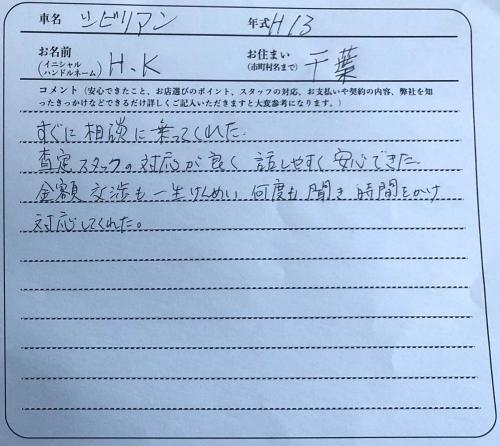 車名 シビリアン 年式 H13
お名前 (イニシャル ハンドルネーム) H.K お住まい (市町村名まで) 千葉
コメント (安心できたこと、お店選びのポイント、スタッフの対応、お支払いや契約の内容、弊社を知
ったきっかけなどできるだけ詳しくご記入いただきますと大変参考になります。)
すぐに相談に乗ってくれた.
査定スタッフの対応が良く 話しやすく安心できた.
金額交渉も一生けんめい 何度も聞き 時間をかけ
対応してくれた。